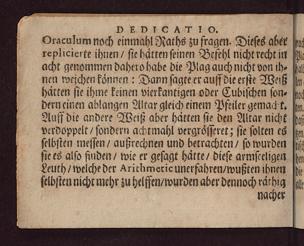 DEDICATIO.
Oraculum noch einmahl Raths zu fragen. Dieses aber
replicierte ihnen / sie hätten seinen Befehl nicht recht in
acht genommen dahero habe die Plag auch nicht von ih-
nen weichen können: Dann sagte er auff die erste Weiß
hätten sie ihme keinen vierkantigen oder Cubischen son-
dern einen ablangen Altar gleich einem Pfeiler gemacht.
Auff die andere Weiß aber hätten sie den Altar nicht
verdoppelt / sondern achtmahl vergrösseret; sie solten es
selbsten messen / außrechnen und betrachten / so wurden
sie es also finden / wie er gesagt hätte / diese armseligen
Leuth / welche der Arithmetic unerfahren / wußten ihnen
selbsten nicht mehr zu helffen / wurden aber dennoch räthig
nacher